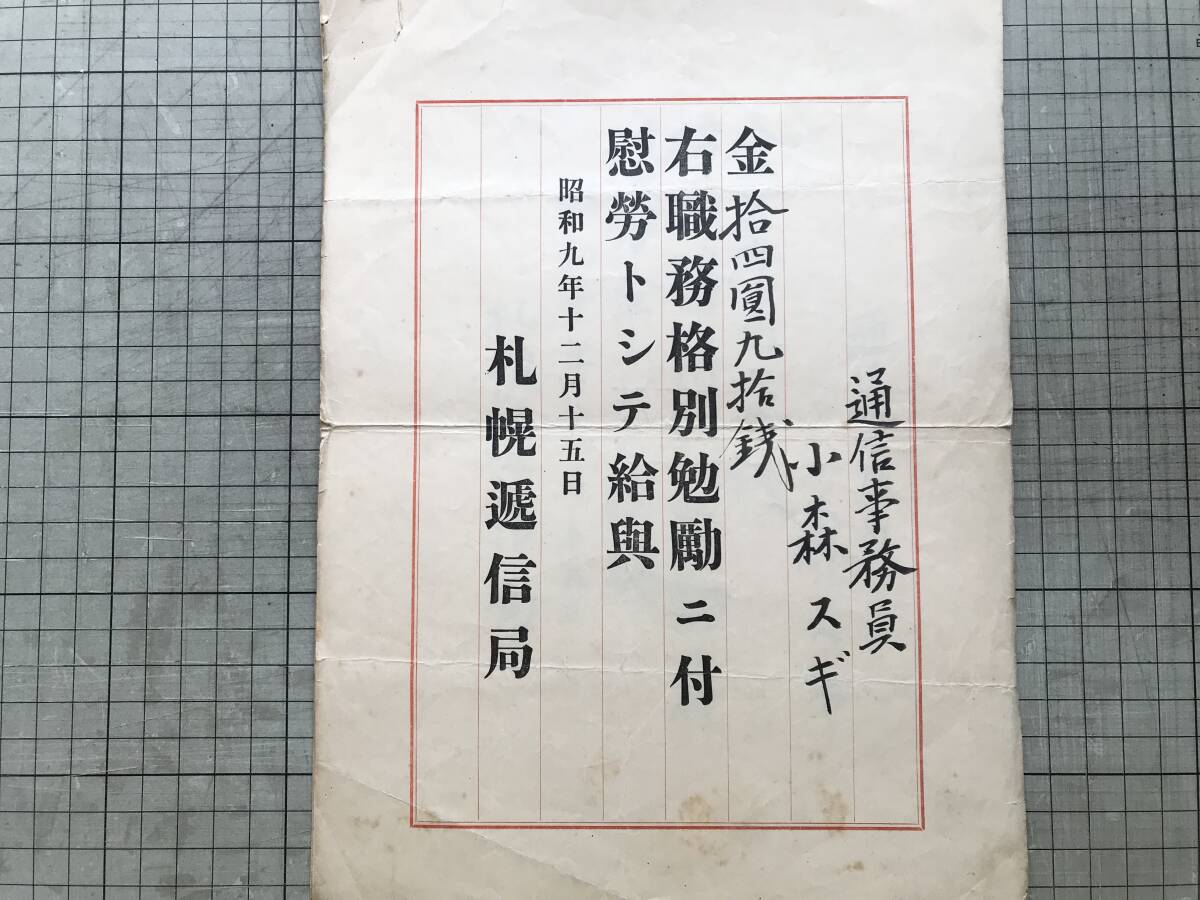 通信事務員
小森スギ
金拾四圓九拾銭
右職務格別勉勵ニ付
慰勞トシテ給與
昭和九年十二月十五日
札幌遞信局